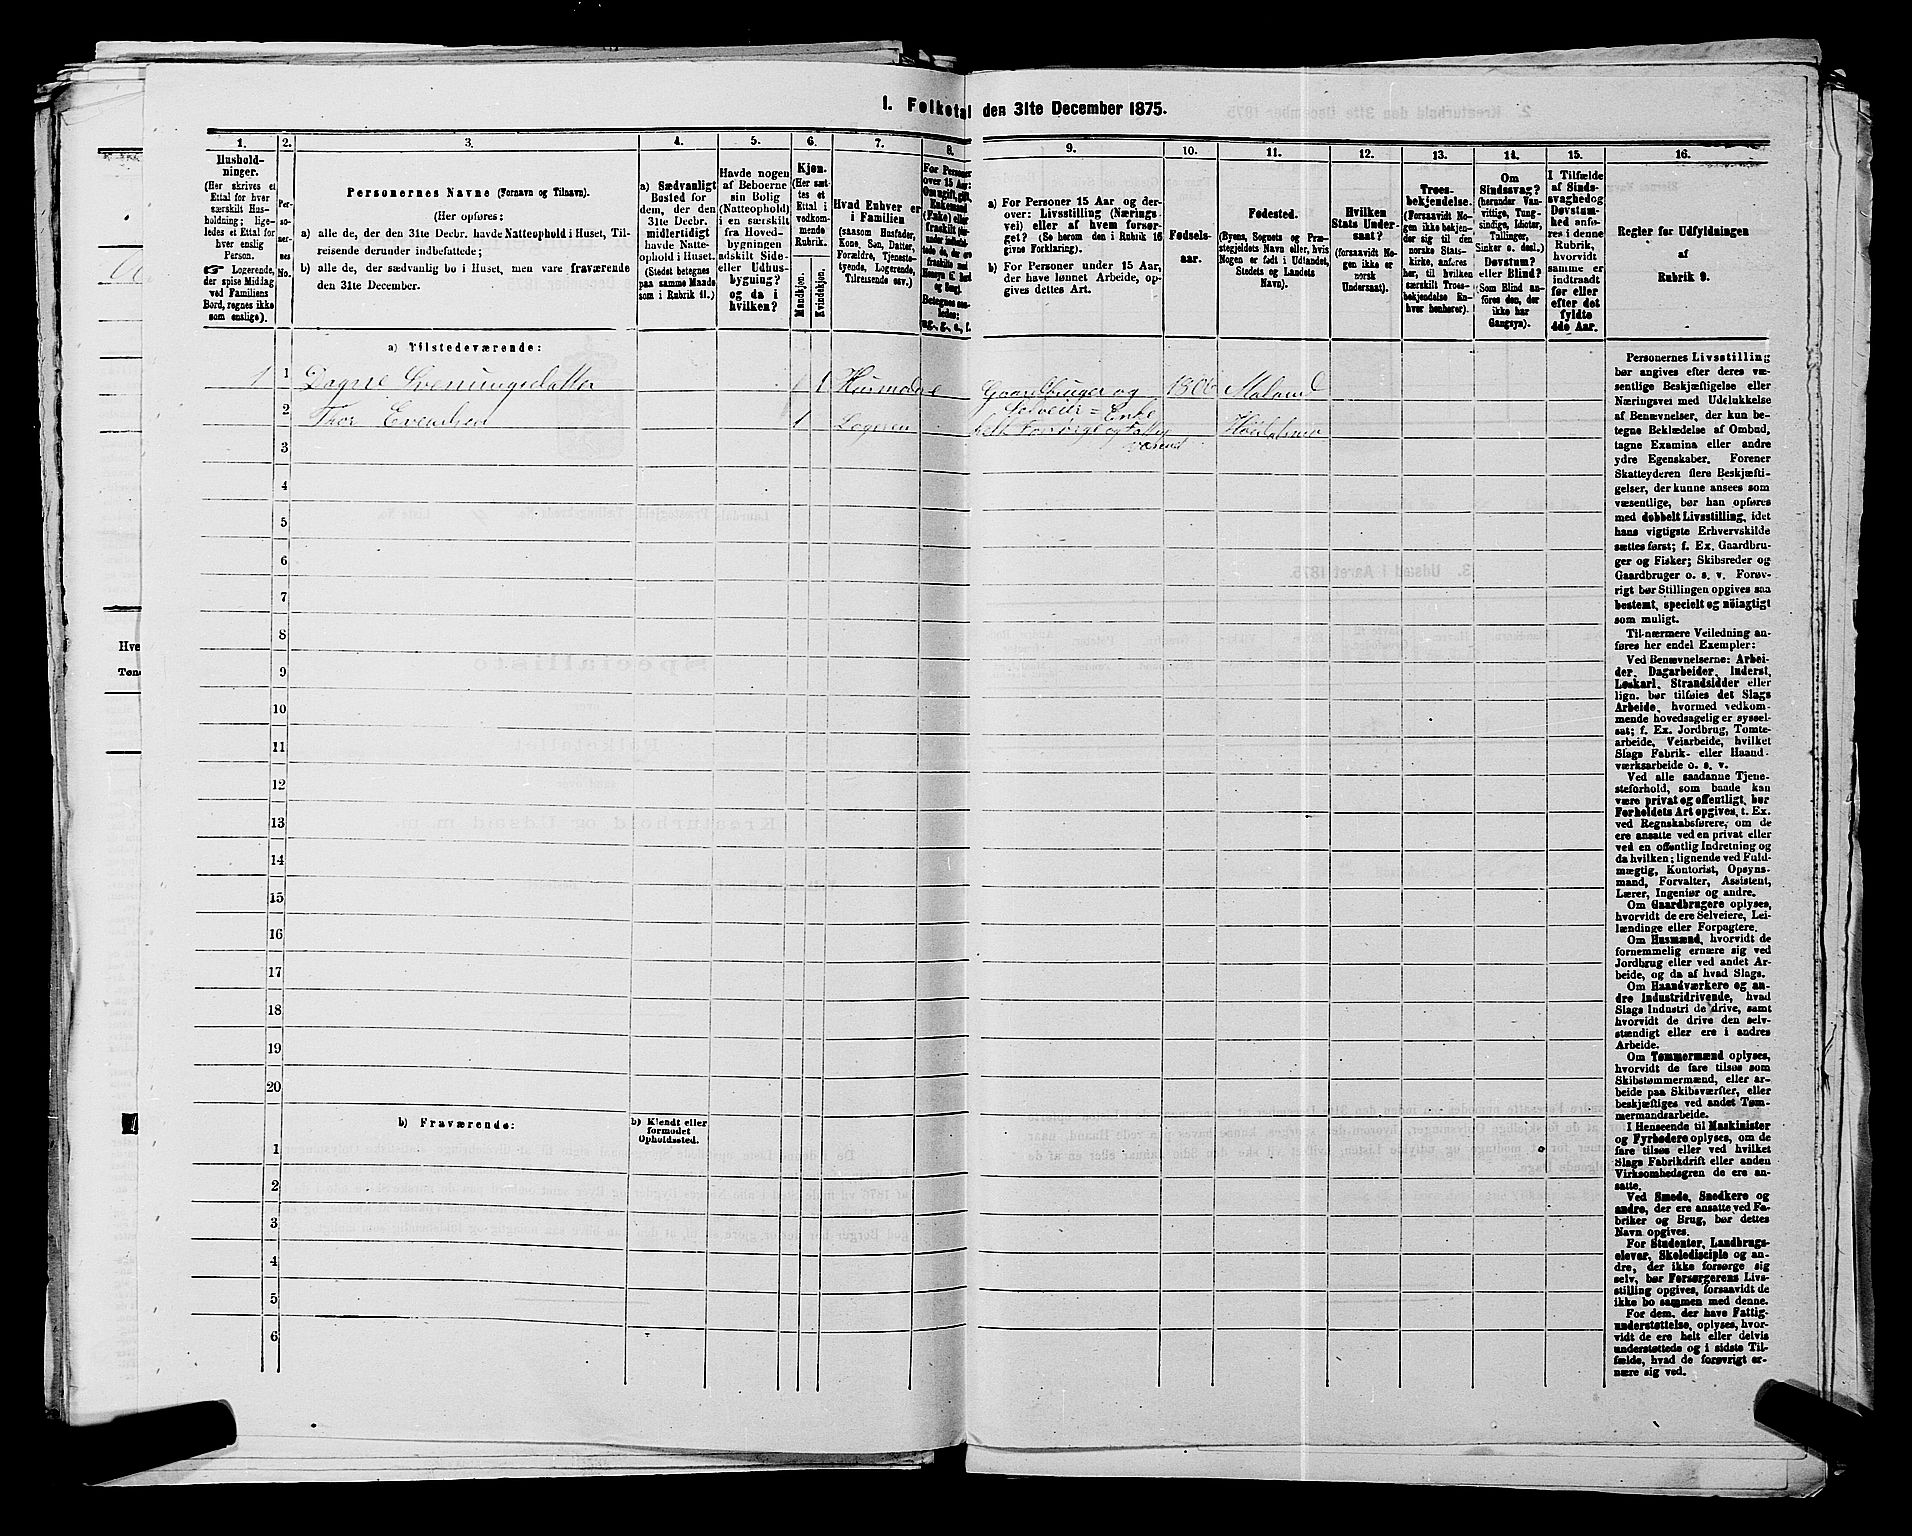 1. Folketal den 31te December 1875.
1.
2.
3.
4.
5.
6.
7.
8.
9.
10.
11.
12.
13.
14.
15.
16.
Hushold-
ninger.
(Her skrives et
Ettal for hver
særskilt Hus-
holdning; lige-
ledes et Ettal for
hver enslig
Person.
☞ Logerende,
der spise Middag
ved Familiens
Bord, regnes ikke
som enslige).
Per-
soner-
nes
No.
Personernes Navne (Fornavn og Tilnavn).
(Her opføres:
a) alle de, der den 31te Decbr. havde Natteophold i Huset, Til-
reisende derunder indbefattede;
b) alle de, der sædvanlig bo i Huset, men vare fraværende
den 31te December.
a) Sædvanligt
Bosted for
dem, der den
31te Decbr.
midlertidigt
havde Natte-
ophold i Huset.
(Stedet betegnes
paa samme Maade
som i Rubrik 11.)
Havde nogen
af Beboerne
sin Bolig
(Natteophold)
i en særskilt
fra Hoved-
bygningen
adskilt Side-
eller Udhus-
bygning?
og da i
hvilken?
Kjøn.
(Her sæt-
tes et
Ettal i
vedkom-
mende
Rubrik.
Mandkjøn.
Kvindekjøn.
Hvad Enhver er
i Familien
(saasom Husfader,
Kone, Søn, Datter,
Forældre, Tjeneste-
tyende, Logerende,
Tilreisende osv.)
For Personer
over 15 Aar:
a) For Personer 15 Aar og der-
over: Livsstilling (Nærings-
vei) eller af hvem forsør-
get? (Se herom den i Rubrik 16
givne Forklaring).
b) For Personer under 15 Aar,
der have lønnet Arbeide, op-
gives dettes Art.
Fødsels-
aar.
Fødested.
(Byens, Sognets og Præ-
stegjeldets Navn eller, hvis
Nogen er født i Udlandet,
Stedets og Landets
Navn).
Hvilken
Stats Under-
saat?
(forsaavidt No-
gen ikke er
norsk
Undersaat).
Troes-
bekjendelse.
(Forsaavidt No-
gen ikke bekjen-
der sig til den
norske Stats-
kirke, anføres
her, til hvilken
særskilt Troes-
bekjendelse En-
hver henhører).
Om
Sindssvag?
(herunder Van-
vittige, Tung-
sindige, Idioter,
Tullinger,
Sinker o. desl.)
Døvstum?
eller Blind?
(Som Blind an-
føres den, der
ikke har
Gangsyn).
I Tilfælde
af Sinds-
svaghed og
Døvstum-
hed anfø-
res i denne
Rubrik,
hvorvidt
samme er
indtraadt
før eller
efter det
fyldte
4de Aar.
Regler for Udfyldningen
af
Rubrik 9.
a) Tilstedeværende:
1 1 Dagne Sveinungsdatter 1 Husmoder Gaardbruger og Selveier = Enke 1806
2 Thor Evendsen 1 Logeren
3
4
5
6
7
8
9
10
11
12
13
14
15
16
17
18
19
20
b) Fraværende:
b) Kjendt eller
formodet
Opholdssted.
1
2
3
4
5
6
Personernes Livsstilling
bør angives efter deres væ-
sentlige Beskjæftigelse eller
Næringsvei med Udelukkelse
af Benævnelser, der kun be-
tegne Beklædelse af Ombud,
tagne Examina eller andre
ydre Egenskaber. Forener
Skatteyderen flere Beskjæfti-
gelser, der kunne ansees som
væsentlige, bør han opføres
med dobbelt Livsstilling, idet
hans vigtigste Erhvervskilde
sættes først; f. Ex. Gaardbru-
ger og Fisker; Skibsreder og
Gaardbruger o. s. v. Forøv-
rigt bør Stillingen opgives saa
bestemt, specielt og nøiagtigt
som muligt.
Til nærmere Veiledning an-
føres her endel Exempler:
Ved Benævnelserne: Arbei-
der, Dagarbeider, Inderst,
Løskarl, Strandsidder eller
lign. bør tilføies det Slags
Arbeide, hvormed vedkom-
mende hovedsagelig er syssel-
sat; f. Ex. Jordbrug, Tomte-
arbeide, Veiarbeide, hvilket
Slags Fabrik- eller Haand-
værksarbeide o. s. v.
Ved alle saadanne Tjene-
steforhold, som baade kan
være privat og offentligt, bør
Forholdets Art opgives, t. Ex.
ved Regnskabsførere, om de
ere ansatte ved en privat eller
ved en offentlig Indretning og
da hvilken; lignende ved Fuld-
mægtig, Kontorist, Opsyns-
mand, Forvalter, Assistent,
Lærer, Ingeniør og andre.
Om Gaardbrugere oplyses,
hvorvidt de ere Selveiere, Lei-
lændinge eller Forpagtere.
Om Husmænd, hvorvidt de
fornemmelig ernære sig ved
Jordbrug eller ved andet Ar-
beide, og da af hvad Slags.
Om Haandværkere og an-
dre Industridrivende, hvad
Slags Industri de drive, samt
hvorvidt de drive den selv-
stændigt eller ere i andres
Arbeide.
Om Tømmermænd oplyses,
hvorvidt de fare tilsøs som
Skibstømmermænd, eller ar-
beide paa Skibsværfter, eller
beskjæftiges ved andet Tøm-
mermandsarbeide.
I Henseende til Maskinister
og Fyrbødere oplyses, om de
fare tilsøs eller ved hvilket
Slags Fabrikdrift eller anden
Virksomhedsgren de ere an-
satte.
Ved Smede, Snedkere og
andre, der ere ansatte ved Fa-
briker og Brug, bør dettes
Navn opgives.
For Studenter, Landbrugs-
elever, Skoledisciple og an-
dre, der ikke forsørge sig
selv, bør Forsørgerens Livs-
stilling opgives, forsaavidt de
ikke bo sammen med denne.
For dem, der have Fattig-
understøttelse, oplyses, hvor-
vidt de ere helt eller delvis
understøttede og i sidste Til-
fælde, hvad de forøvrigt er-
nære sig ved.